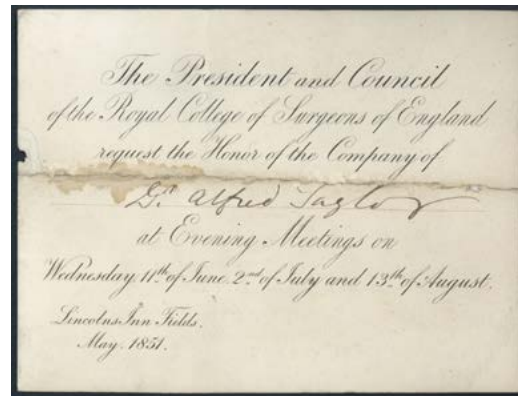 The President and Council
of the Royal College of Surgeons of England
request the Honor of the Company of
Dr. Alfred Taylor
at Evening Meetings on
Wednesday 11th of June. 2nd of July and 13th of August.
Lincolns Inn Fields.
May. 1851.